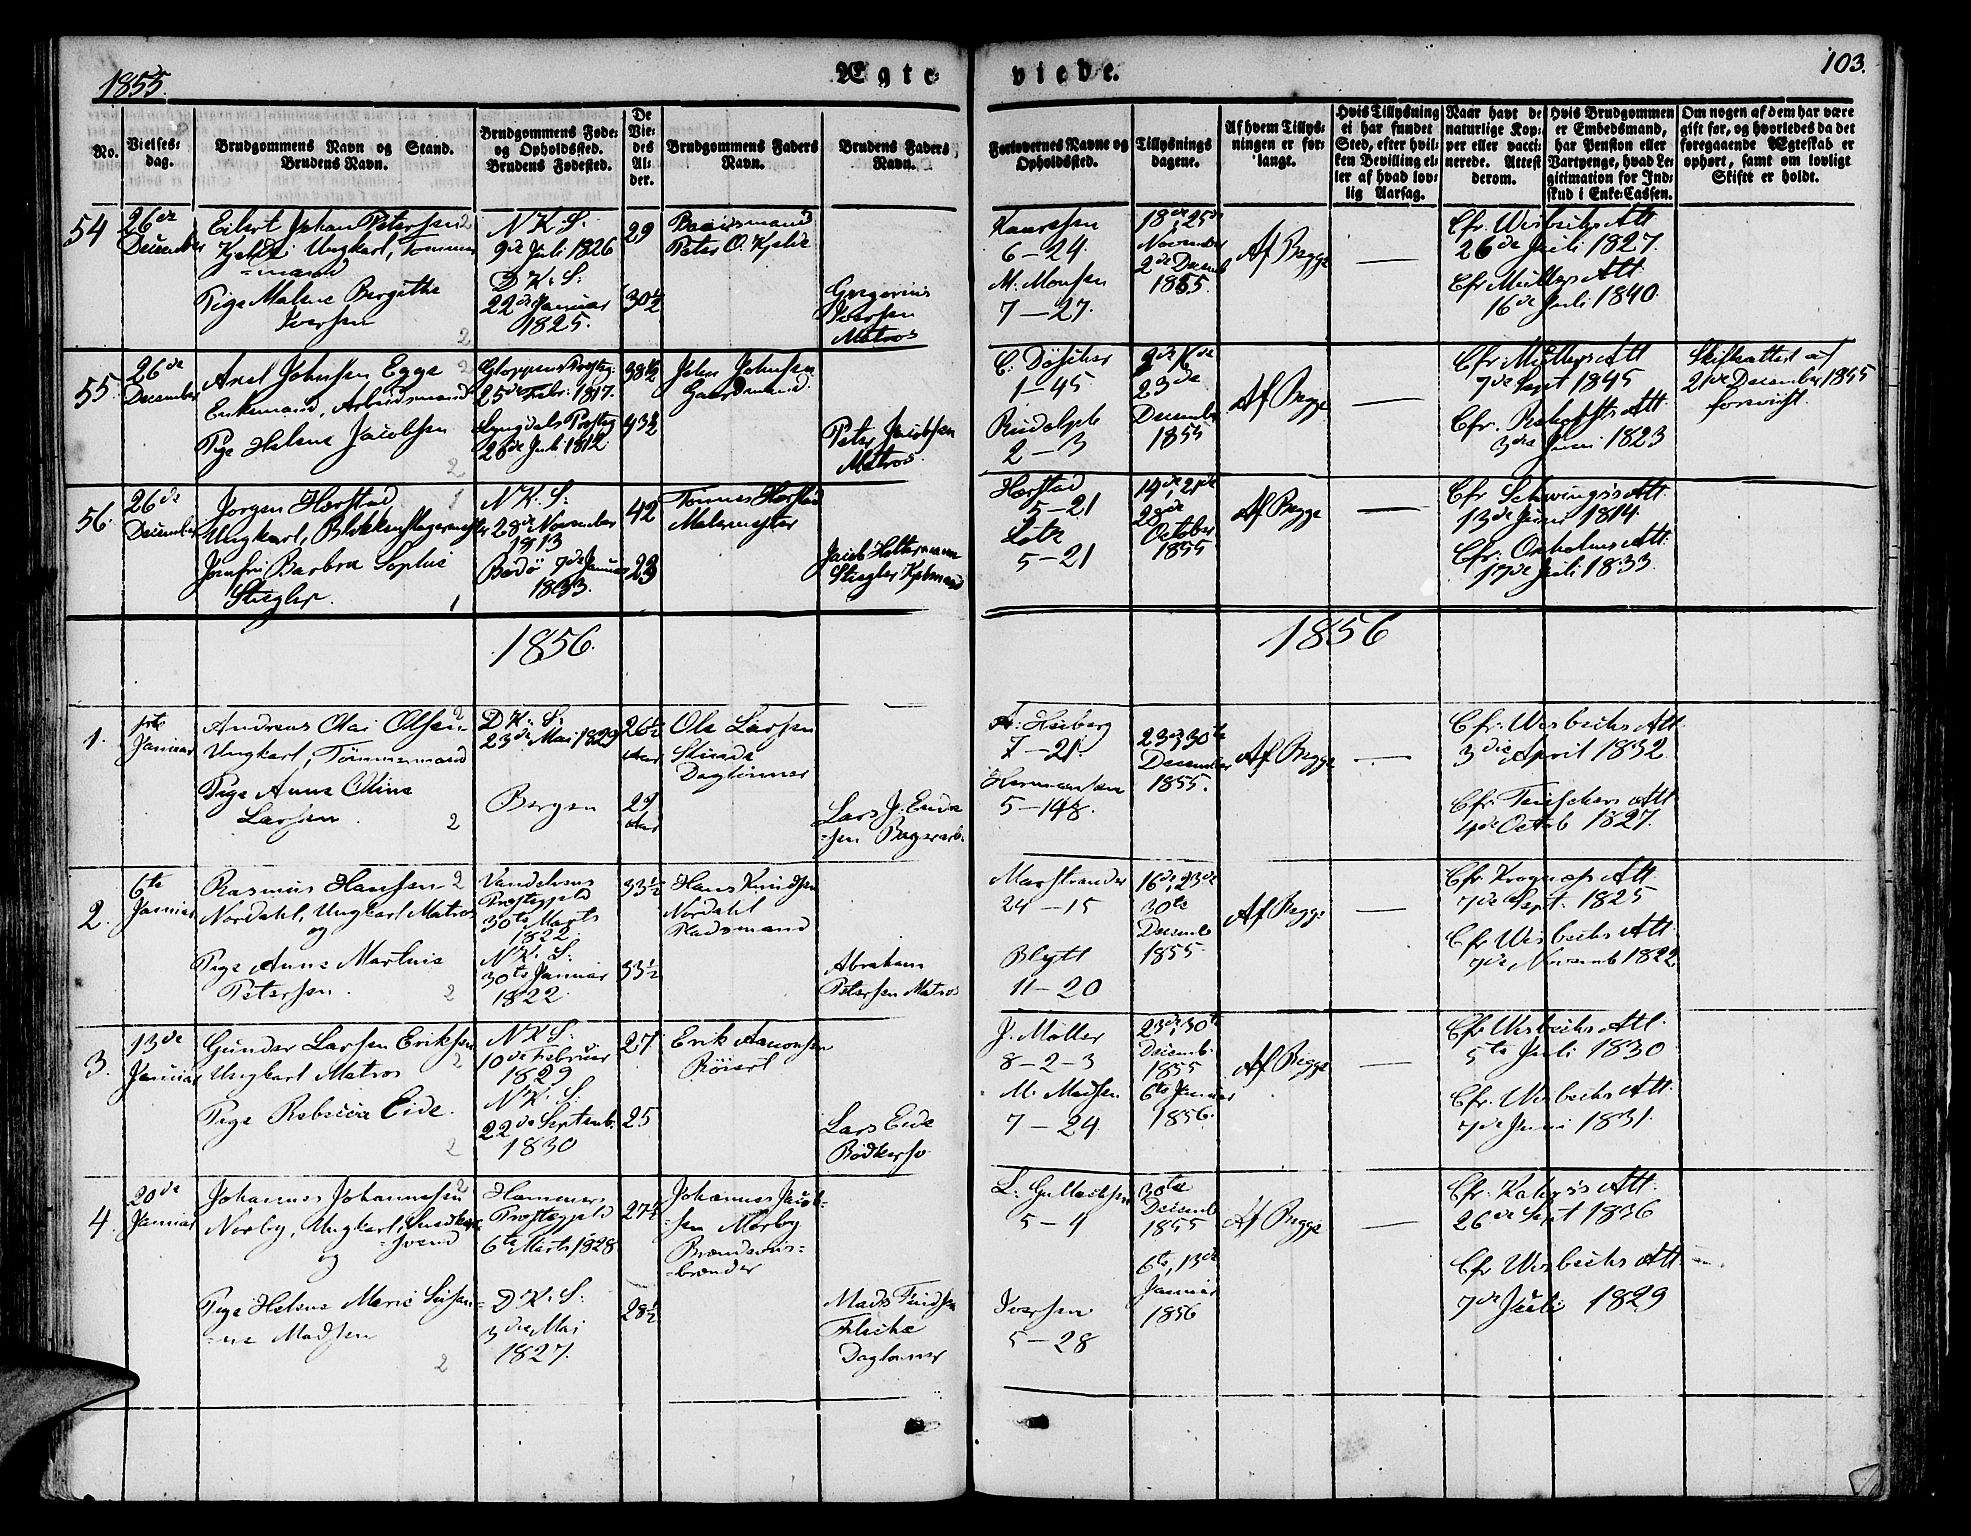 1855.
Ægte-
viede.
103.
No.
Vielses-
dag.
Brudgommens Navn og Stand.
Brudens Navn.
Brudgommens Føde-
og Opholdssted.
Brudens Fødested.
De
Vie-
des
Al-
der.
Brudgommens Faders
Navn.
Brudens Faders
Navn.
Forlovernes Navne og
Opholdssted.
Tillysnings
dagene.
Af hvem Tillys-
ningen er for-
langt.
Hvis Tillysning
ei har fundet
Sted, efter hvil-
ken Bevilling el-
ler af hvad lov-
lig Aarsag.
Naar havt de
naturlige Kop-
per eller vacci-
nerede. Attest
derom.
Hvis Brudgommen
er Embedsmand,
har Pension eller
Vartpenge, hvad Le-
gitimation for Ind-
skud i Enke-Cassen.
Om nogen af dem har være
gift før, og hvorledes da det
foregaaende Ægteskab er
ophørt, samt om lovligt
Skifte er holdt.
54
26de
December
Eilert Johan Petersen 2
Ungkarl, Tømmer
=mand
Pige Malene Bergithe
Iversen
2
N.K.S:
9de Juli 1826
D.K.S:
22de Januar
1825.
29
30½
Peter O.
Gregorius
Iversen
Matros
6-24
M. Monsen
7-27
18de, 25de
November
2de Decemb
1855.
Af Begge
—
Cfr. Wisbechs Att
26de Juli 1827.
Cfr Müllers Att.
16de Juli 1840.
55.
26de
December
Axel Johnsen Egge 2
Enkemand, Arbeidsmand
Pige Helene Jacobsen
2
Gloppens Prstg.
25de Febr. 1817.
Lyngdals Prstg
28de Juli 1812
38½
43½
John Johnsen
Gaardmand.
Peter Jacobsen
Matros
1-45
Rudolph
2-3
23de
December
1855
Af Begge
—
Cfr. Müllers Att
7de Sept 1845
Att.
3die Juni 1823
Skifteattest af
21de December 1855
forevist.
56.
26de
December
Jørgen Harstad 1
Ungkarl, Blikkenslagermester
Jomfru Barbra Sophie
Stiegler. 1
N.K.S:
28de November
1813
Bodø 7de Januar
1833.
42
23
Tønnes Harstad
Malermester
Jacob Holtermann
Stiegler Kjøbmand
Harstad
5-21
5-21
14de, 21de
28de
October
1855
Af Begge
—
Cfr Schwings's Att.
13de Juni 1814
Cfr. Att.
17de Juli 1833.
1856.
1856
1.
1ste
Januar
Andreas Olai Olsen 2
Ungkarl, Tømmermand
Pige Anne Oline
Larsen. 2
D.K.S:
23de Mai 1829
Bergen
26½
Aar
29
Aar
Ole Larsen
Daglønner
Lars J.
7-21.
Hermansen
5-148.
23de, 30te
December
1855.
Af Begge
—
Cfr. Wisbechs Att.
3die April 1832.
Att
4de Octob 1827.
2.
6te
Januar
Rasmus Hansen 2
Nordahl, Ungkarl Matros
og
Pige Anne Martine
Petersen. 2
Prstgjeld
30te Marts
1822.
N.K.S:
30te Januar
1822.
33½
33½
Hans Knudsen
Nordahl
Pladsmand
Abraham
Petersen Matros
Marstrander
24-15
Blytt
11-20
16de, 23de
30te
Decemb
1855
Af Begge
—
Att
7de Sept. 1825
Cfr Wisbechs Att
7de Novemb 1822
3.
13de
Januar
Gunder Larsen Eriksen
2
Ungkarl Matros
Pige Rebecca Eide.
2
N.K.S:
10de Februar
1829
N.K.S:
22de Septemb.
1830
27
25
Erik Aanonsen
Lars Eide
Bødkersv.
J. Møller
8-2-3
M. Madsen
7-24
23de, 30te
Decemb.
1855
6te Januar
1856.
Af Begge
—
Cfr Wisbechs Att.
5te Juli 1830
Cfr. Wisbechs Att.
7de Juni 1831.
4.
20de
Januar
Johannes Johannesen 2
Norby, Ungkarl,
=svend
og
Pige Helene Marie
Madsen
2
Hammers
Prstgjeld
6te Marts 1828.
D.K.S:
3die Mai
1827.
27½
28½
Johannes Jacob-
=sen Norby
Brændeviins-
=brænder
Mads
Daglønner
5-4
Iversen
5-28
30te
Decemb
1855
6te, 13de
Januar
1856
Af Begge
—
Att.
26de Sept 1836
Cfr Wisbechs Att.
7de Juli 1829